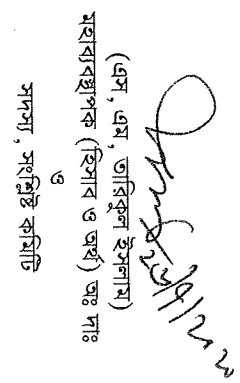 (এস, এম, তারিকুল ইসলাম)
মহাব্যবস্থাপক (হিসাব ও অর্থ) অঃ দাঃ
ও
সদস্য, সংশ্লিষ্ট কমিটি